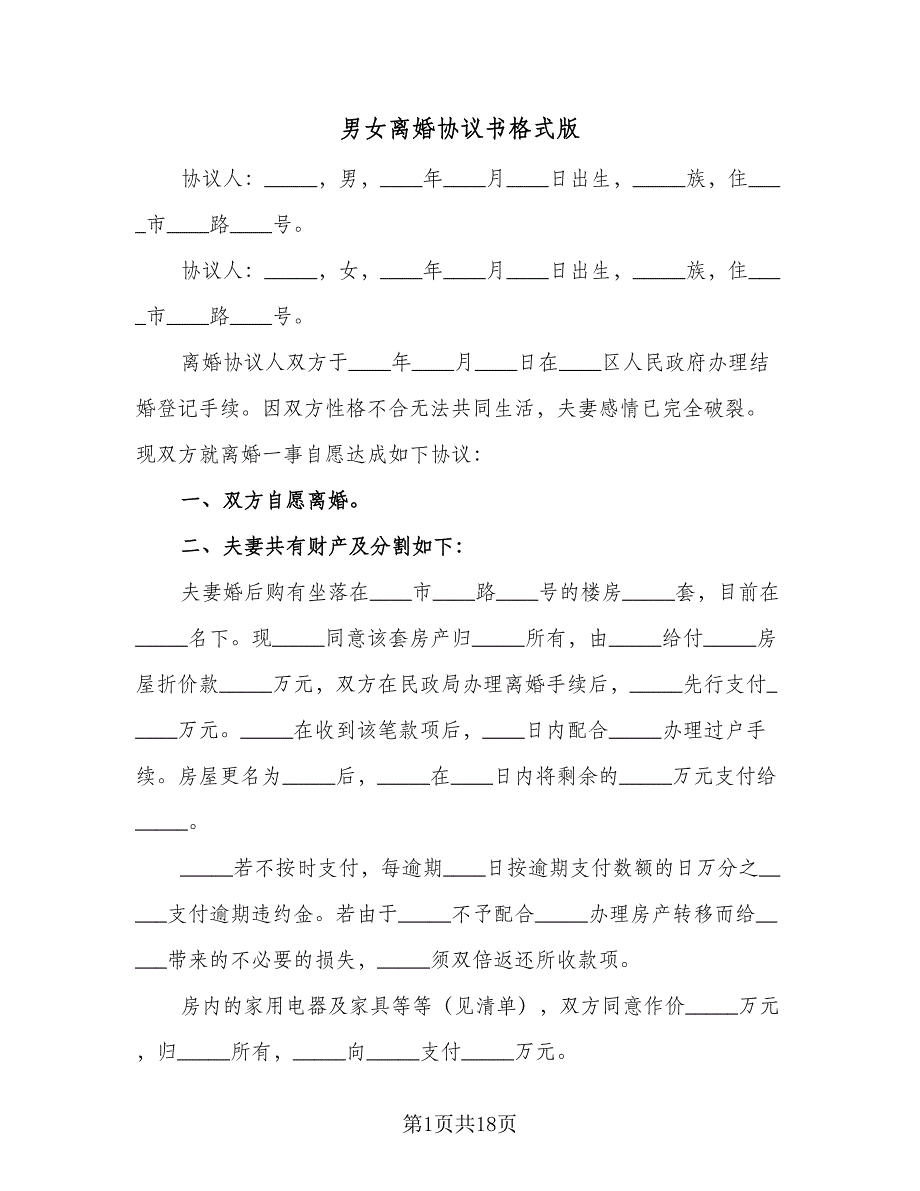 男女离婚协议书格式版
协议人：_____，男，____年____月____日出生，_____族，住___
_市____路____号。
协议人：_____，女，____年____月____日出生，_____族，住___
_市____路____号。
离婚协议人双方于____年____月____日在____区人民政府办理结
婚登记手续。因双方性格不合无法共同生活，夫妻感情已完全破裂。
现双方就离婚一事自愿达成如下协议：
一、双方自愿离婚。
二、夫妻共有财产及分割如下：
夫妻婚后购有坐落在____市____路____号的楼房_____套，目前在
_____名下。现_____同意该套房产归_____所有，由_____给付_____房
屋折价款_____万元，双方在民政局办理离婚手续后，_____先行支付_
____万元。_____在收到该笔款项后，____日内配合_____办理过户手
续。房屋更名为_____后，_____在____日内将剩余的_____万元支付给
_____。
_____若不按时支付，每逾期____日按逾期支付数额的日万分之__
___支付逾期违约金。若由于_____不予配合_____办理房产转移而给__
___带来的不必要的损失，_____须双倍返还所收款项。
房内的家用电器及家具等等（见清单），双方同意作价_____万元
，归_____所有，_____向_____支付_____万元。
第1页共18页